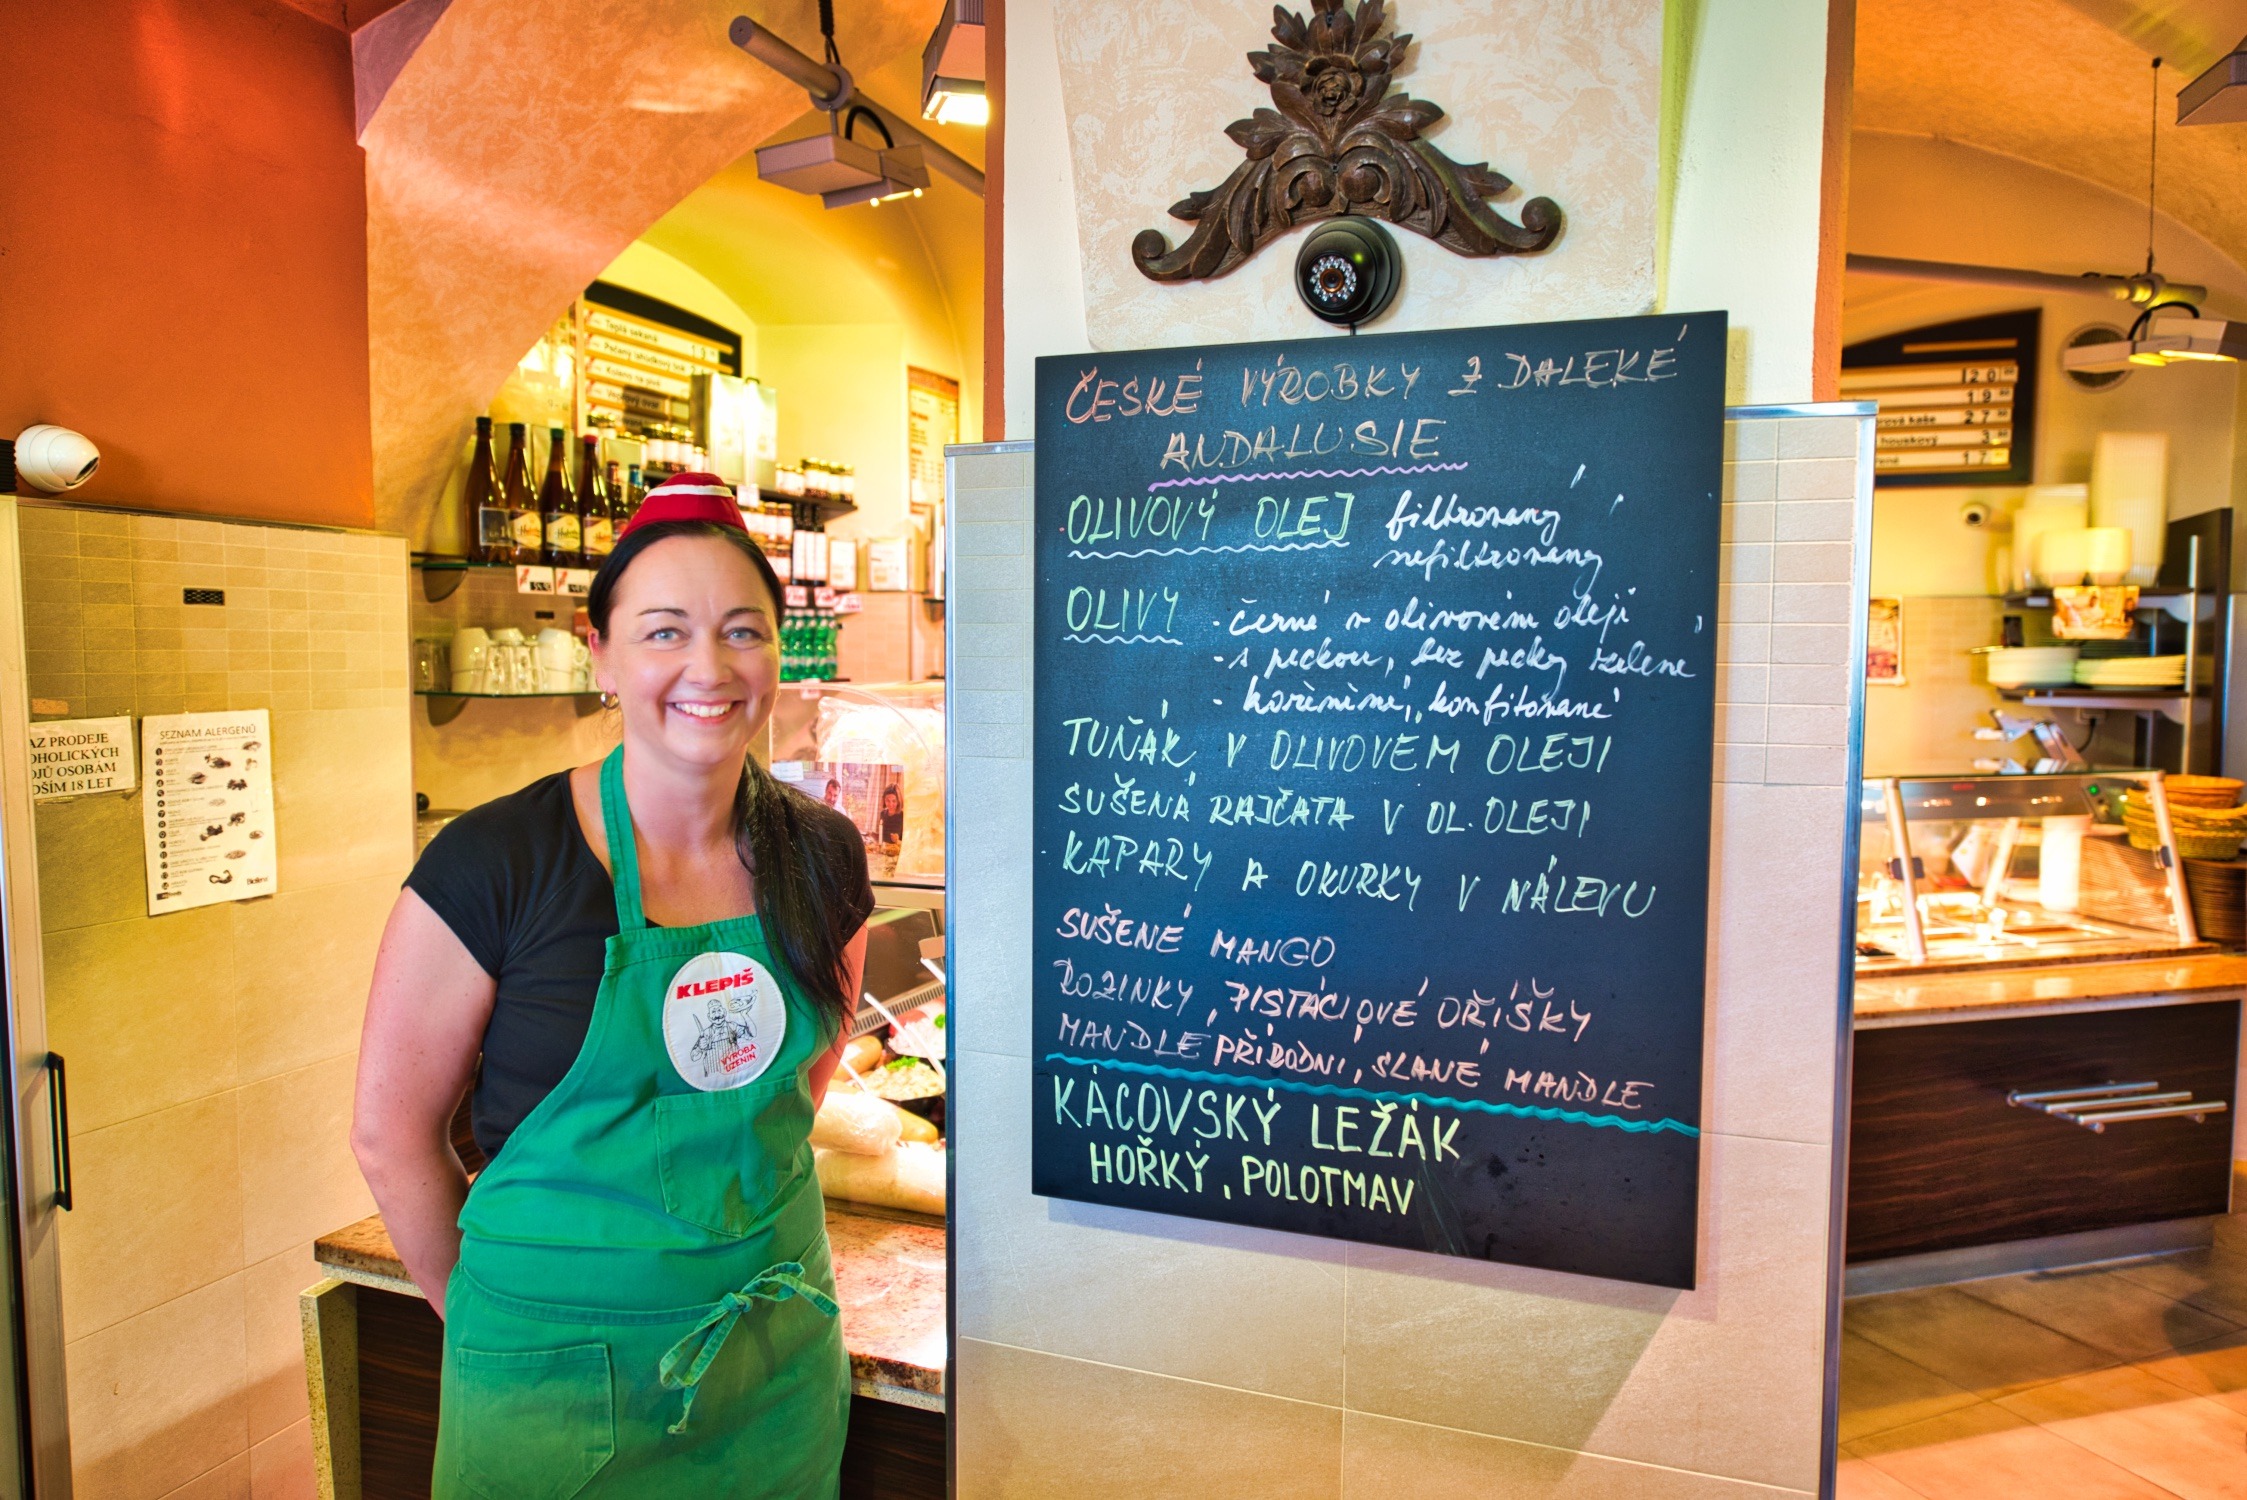 ČESKÉ VÝROBKY Z DALEKÉ
ANDALUSIE
OLIVOVÝ OLEJ filtrovaný
nefiltrovaný
OLIVY - černé v olivovém oleji
- s peckou, bez pecky zelené
- kořeněné, konfitované
TUŇÁK V OLIVOVÉM OLEJI
SUŠENÁ RAJČATA V OL. OLEJI
KAPARY A OKURKY V NÁLEVU
SUŠENÉ MANGO
ROZINKY, PISTÁCIOVÉ OŘÍŠKY
MANDLE PŘÍRODNÍ, SLANÉ MANDLE
KÁCOVSKÝ LEŽÁK
HOŘKÝ, POLOTMAV
KLEPIŠ
VÝROBA
UZENIN
AZ PRODEJE
OHOLICKÝCH
OJŮ OSOBÁM
DŠÍM 18 LET
SEZNAM ALERGENŮ
Teplá sekaná
Koleno na pivě
Vepřový ovar
120
19
27
17